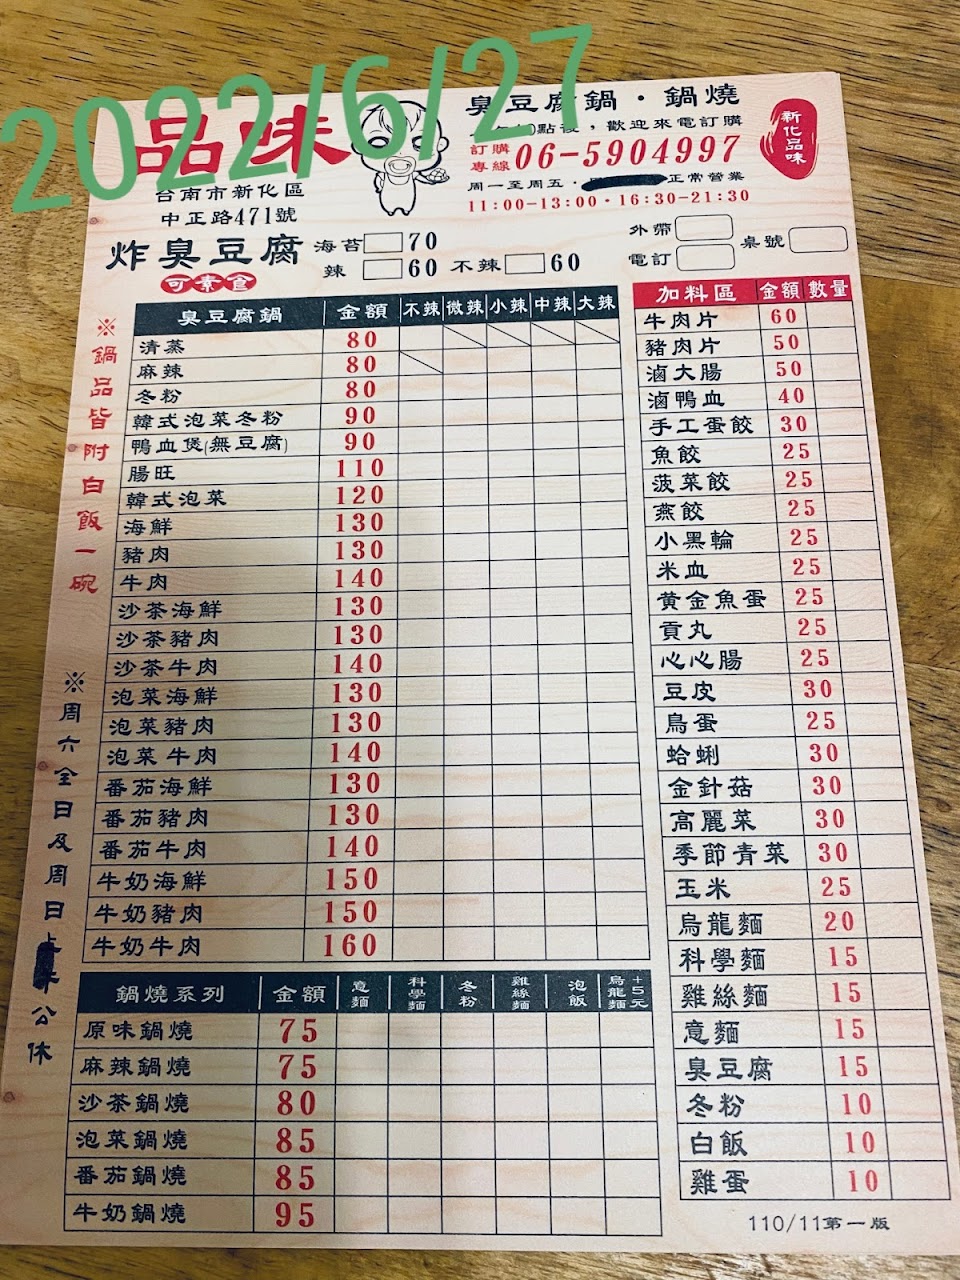 2022/6/27
品味
台南市新化區
中正路471號
臭豆腐鍋·鍋燒
點後，歡迎來電訂購
訂購專線 06-5904997
周一至周五· 正常營業
11:00-13:00·16:30-21:30
新化品味
炸臭豆腐 海苔 70
可素食 辣 60 不辣 60
外帶
電訂
桌號
※鍋品皆附白飯一碗
※周六全日及周日公休
臭豆腐鍋 金額 不辣 微辣 小辣 中辣 大辣
清蒸 80
麻辣 80
冬粉 80
韓式泡菜冬粉 90
鴨血煲(無豆腐) 90
腸旺 110
韓式泡菜 120
海鮮 130
豬肉 130
牛肉 140
沙茶海鮮 130
沙茶豬肉 130
沙茶牛肉 140
泡菜海鮮 130
泡菜豬肉 130
泡菜牛肉 140
番茄海鮮 130
番茄豬肉 130
番茄牛肉 140
牛奶海鮮 150
牛奶豬肉 150
牛奶牛肉 160
鍋燒系列 金額 意麵 科學麵 冬粉 雞絲麵 泡飯 烏龍麵+5元
原味鍋燒 75
麻辣鍋燒 75
沙茶鍋燒 80
泡菜鍋燒 85
番茄鍋燒 85
牛奶鍋燒 95
加料區 金額 數量
牛肉片 60
豬肉片 50
滷大腸 50
滷鴨血 40
手工蛋餃 30
魚餃 25
菠菜餃 25
燕餃 25
小黑輪 25
米血 25
黃金魚蛋 25
貢丸 25
心心腸 25
豆皮 30
鳥蛋 25
蛤蜊 30
金針菇 30
高麗菜 30
季節青菜 30
玉米 25
烏龍麵 20
科學麵 15
雞絲麵 15
意麵 15
臭豆腐 15
冬粉 10
白飯 10
雞蛋 10
110/11第一版